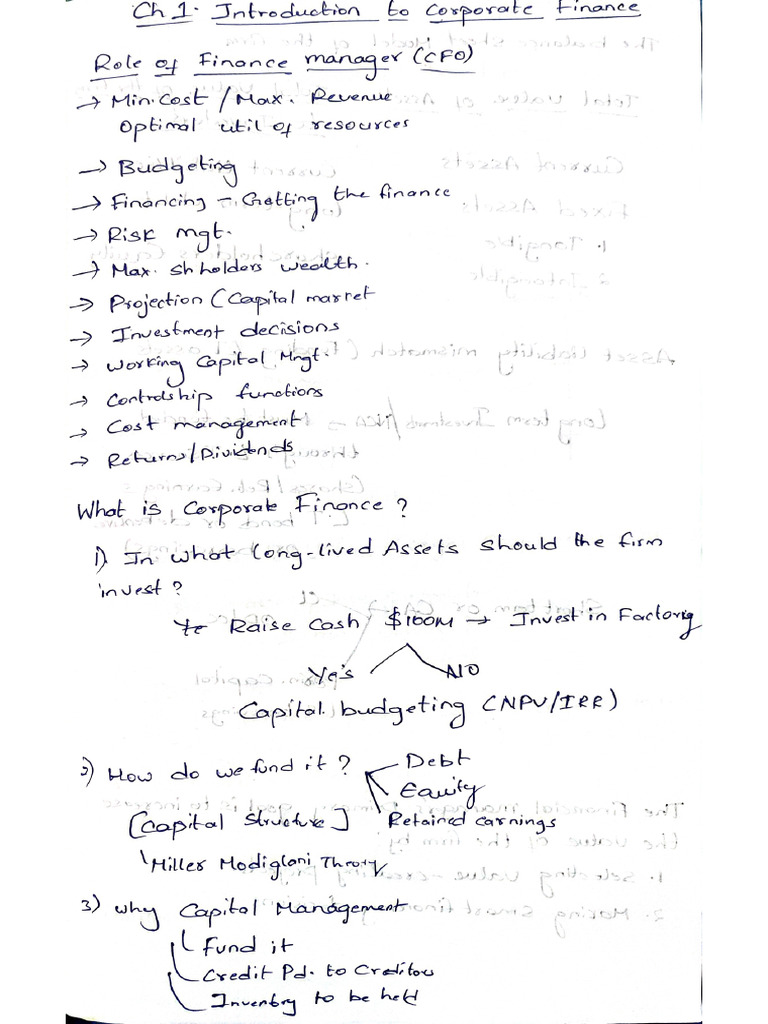 Ch 1. Introduction to Corporate Finance
Role of Finance manager (CFO)
→ Min. Cost / Max. Revenue
Optimal util of resources
→ Budgeting
→ Financing - Getting the finance
→ Risk mgt.
→ Max. sh holders wealth.
→ Projection (Capital market
→ Investment decisions
→ Working Capital Mngt.
→ Controlship functions
→ Cost management
→ Returns/Dividends
What is Corporate Finance?
1) In what long-lived Assets should the firm
invest?
Raise Cash $100M → Invest in Factory
Yes NO
Capital budgeting (NPV/IRR)
2) How do we fund it? Debt
Equity
[Capital Structure] Retained earnings
Miller Modigloni Theory
3) Why Capital Management
Fund it
Credit Pd. to Creditors
Inventory to be held